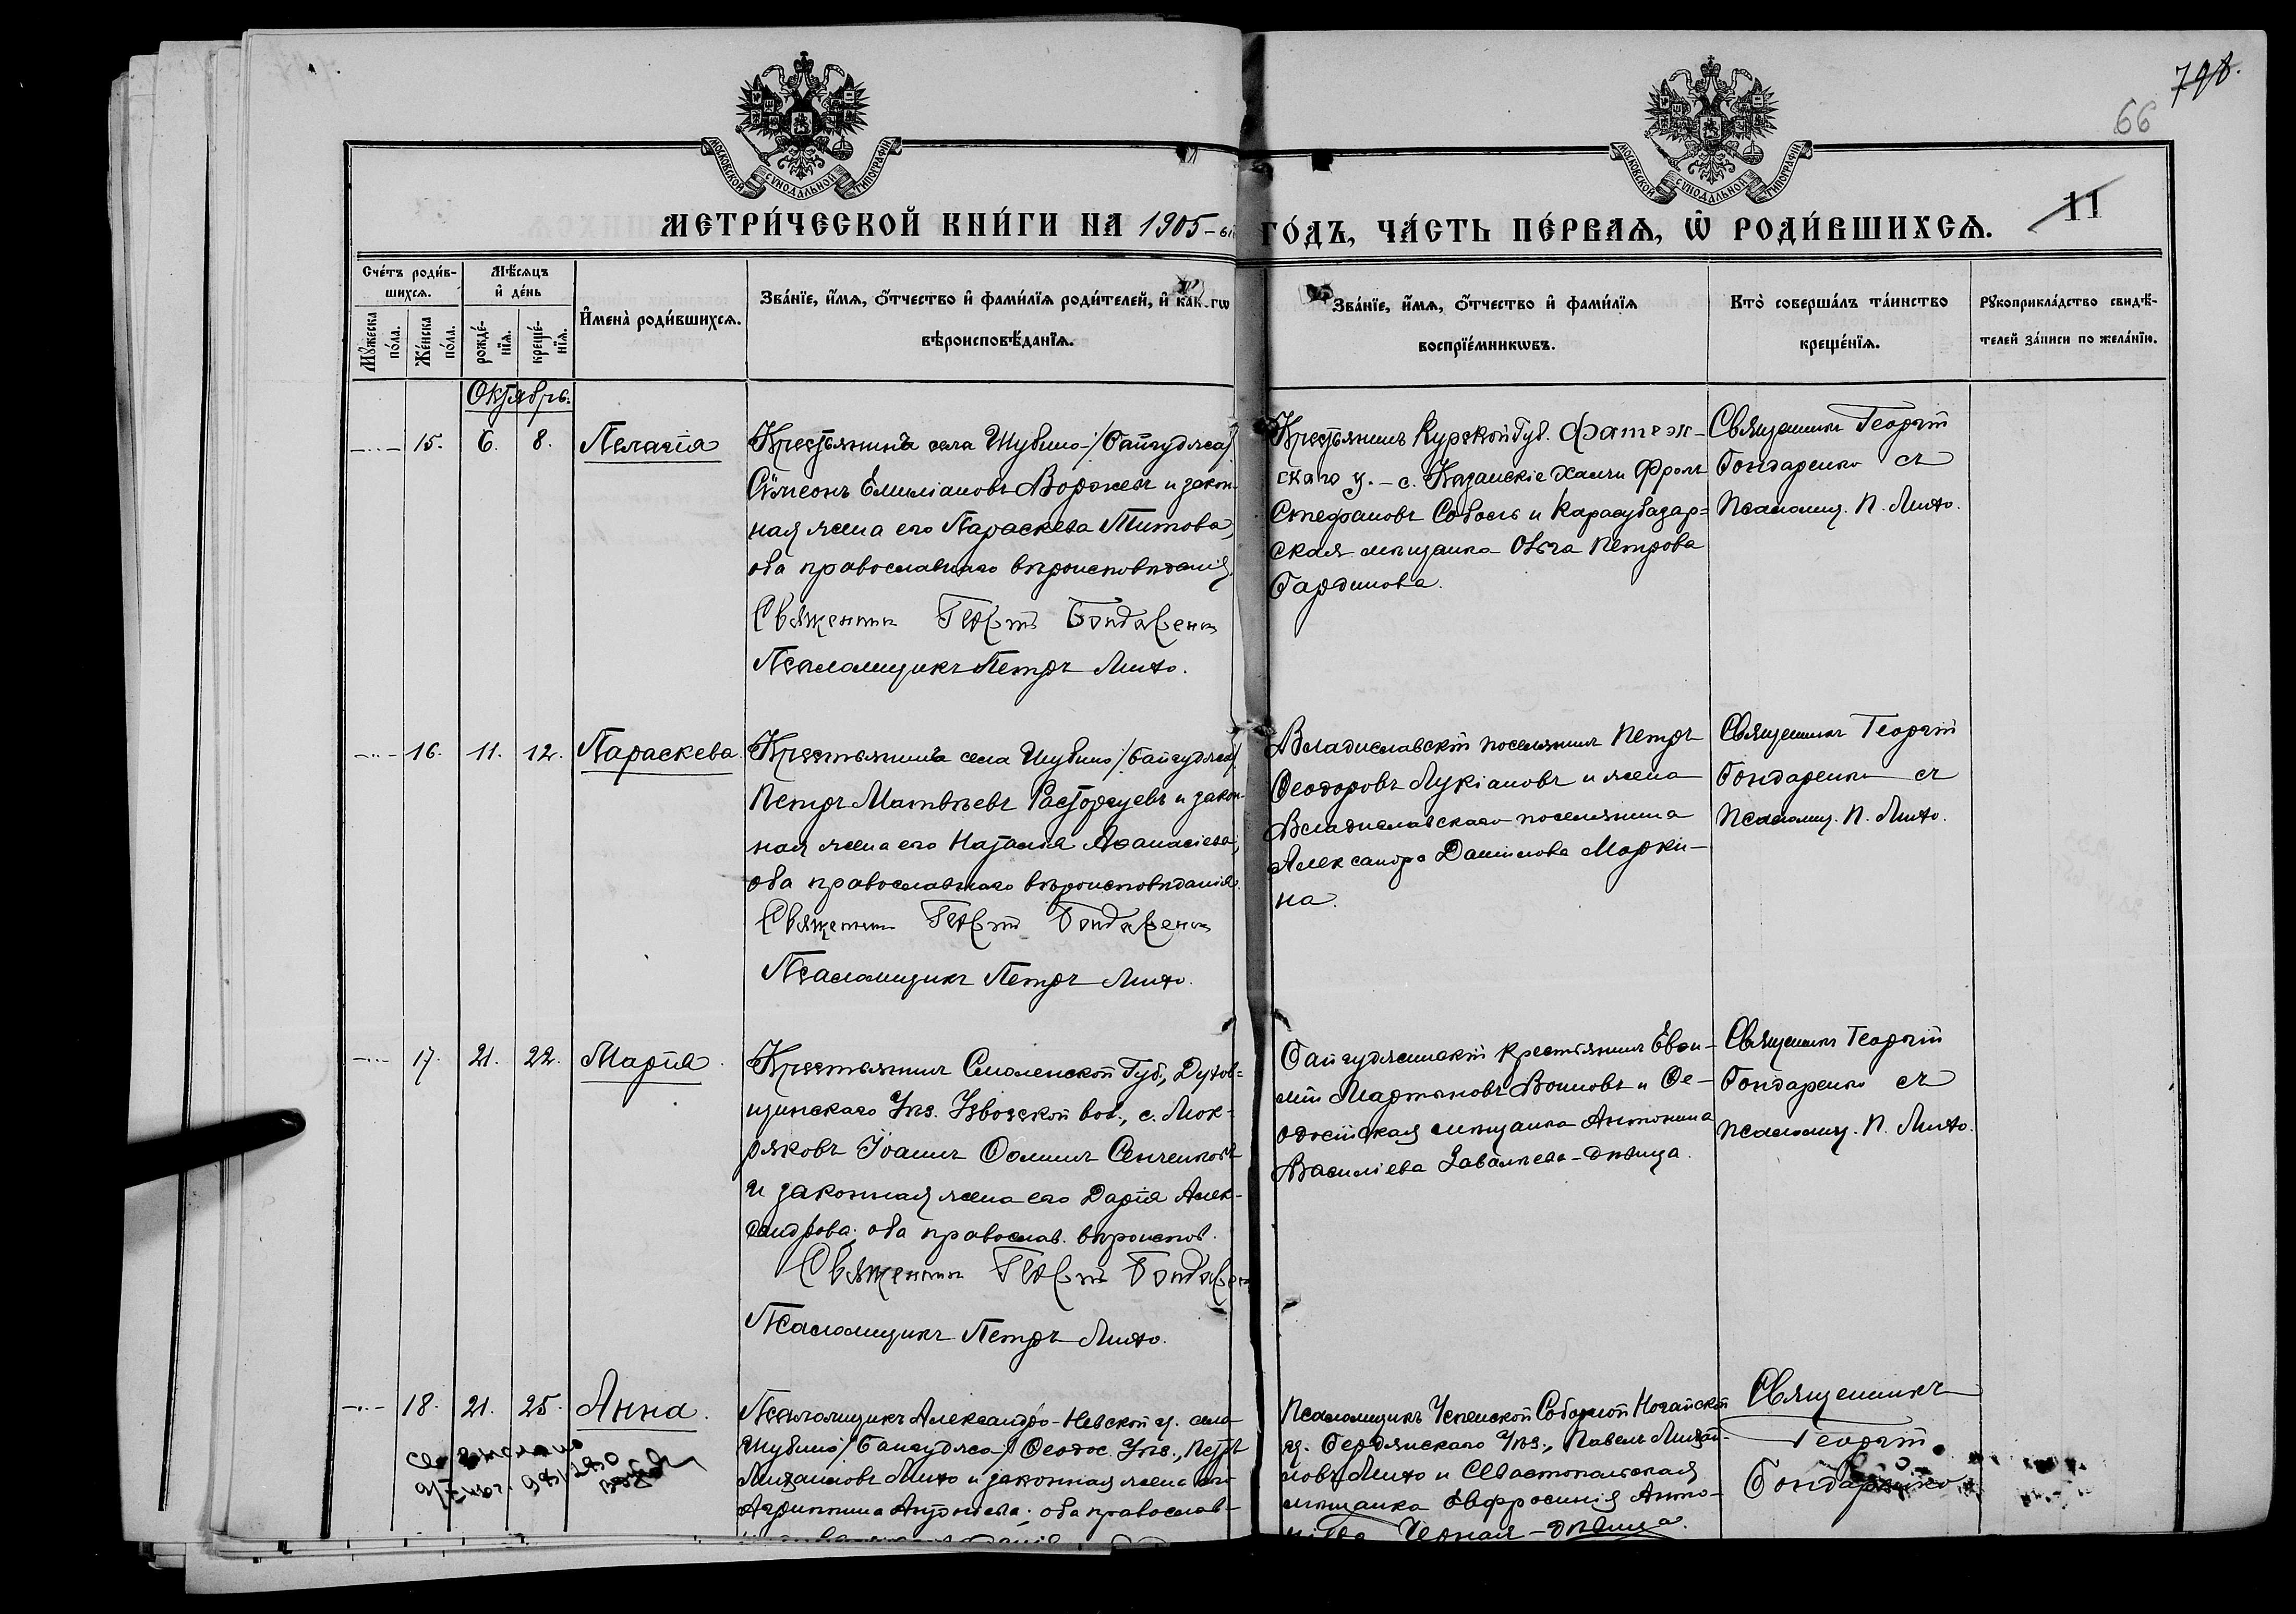 798.
66
МОСКОВСКОЙ СѴНОДАЛЬНОЙ ТИПОГРАФІИ
МОСКОВСКОЙ СѴНОДАЛЬНОЙ ТИПОГРАФІИ
МЕТРИ́ЧЕСКОЙ КНИ́ГИ НА 1905-ый ГО́ДЪ, ЧА́СТЬ ПЕ́РВАѦ, Ѽ РОДИ́ВШИХСѦ. 11
Сче́тъ роди́в-
шихсѧ.
Мꙋ́жеска по́ла.
Же́нска по́ла.
Мѣ́сѧцъ
и҆ де́нь
рожде́-
нїѧ.
креще́-
нїѧ.
И҆мена̀ роди́вшихсѧ.
Зва́нїе, и҆́мѧ, ѻ҆́тчество и҆ фами́лїѧ роди́телей, и҆ как-гѡ
вѣроисповѣ́данїѧ.
Зва́нїе, и҆́мѧ, ѻ҆́тчество и҆ фами́лїѧ
воспрїе́мникѡвъ.
Кто̀ соверша́лъ та́инство
креще́нїѧ.
Рꙋкоприкла́дство свидѣ́-
телей за́писи по жела́нїю.
Октябрь.
15.
6.
8.
Пелагія
Крестьянинъ села Шубино /Байгуджа/
Симеонъ Емиліановъ Воржевъ и закон-
ная жена его Параскева Титова,
оба православнаго вѣроисповѣданія.
Священникъ Георгій Бондаренко
Псаломщикъ Петръ Лихо.
Крестьянинъ Курской Губ. Фатеж-
скаго у. – с. Казанскіе Хамчи Фролъ
Стефановъ Соболь и Карасубазар-
ская мѣщанка Ольга Петрова
Бардинова.
Священникъ Георгій
Бондаренко съ
Псаломщ. П. Лихо.
16.
11.
12.
Параскева.
Крестьянинъ села Шубино /Байгуджа/
Петръ Матвѣевъ Расторгуевъ и закон-
ная жена его Наталія Аѳанасіева,
оба православнаго вѣроисповѣданія.
Священникъ Георгій Бондаренко
Псаломщикъ Петръ Лихо.
Владиславскій поселянинъ Петръ
Ѳеодоровъ Лукіановъ и жена
Владиславскаго поселянина
Александра Даніилова Марки-
на.
Священникъ Георгій
Бондаренко съ
Псаломщ. П. Лихо.
17.
21.
22.
Марія.
Крестьянинъ Смоленской Губ., Духов-
щинскаго Уѣз. Зввозской вол., с. Мок-
ряковъ Іоаннъ Ѳоминъ Сенченковъ
и законная жена его Дарія Алек-
сандрова; оба православ. вѣроиспов.
Священникъ Георгій Бондаренко
Псаломщикъ Петръ Лихо.
Байгуджинскій крестьянинъ Евѳи-
мій Мартыновъ Воиновъ и Ѳе-
одосійская мѣщанка Антонина
Василіева Завалкева – дѣвица.
Священникъ Георгій
Бондаренко съ
Псаломщ. П. Лихо.
18.
21.
25.
Анна.
Псаломщикъ Александро-Невской ц. села
Шубино /Байгуджа/ Ѳеодос. Уѣз., Петръ
Михаиловъ Лихо и законная жена его
Агриппина Антоніева; оба православ-
Псаломщикъ Успенской Соборной Ногайской
ц. Бердянскаго Уѣз., Павелъ Михаи-
ловъ Лихо и Севастопольская
мѣщанка Евфросинія Анто-
ніева Черная – дѣвица.
Священникъ
Георгій
Бондаренко